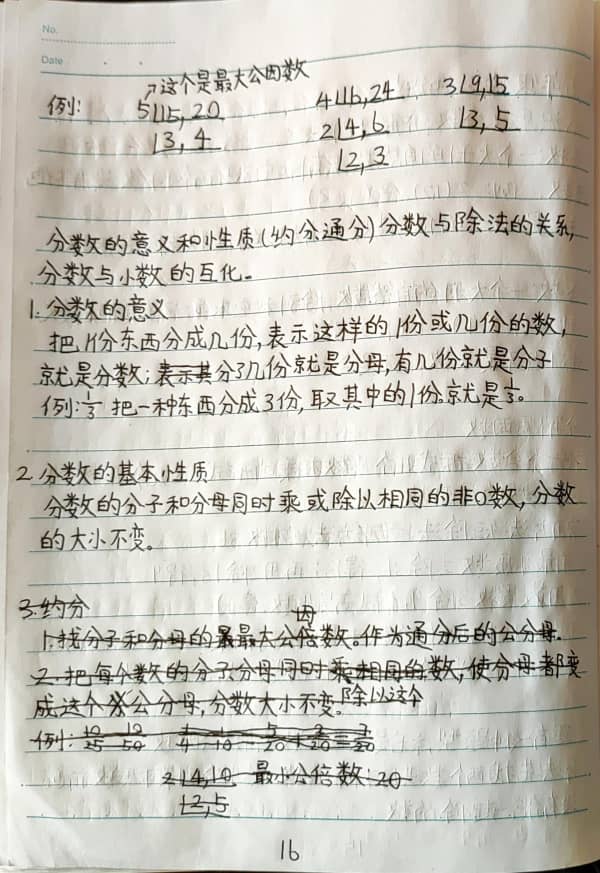 No.
Date
↗这个是最大公因数
例: 5|15,20 4|16,24 3|9,15
|3,4 2|4,6 |3,5
|2,3
分数的意义和性质(约分通分)分数与除法的关系,
分数与小数的互化。
1.分数的意义
把1份东西分成几份,表示这样的1份或几份的数,
就是分数;表示其分了几份就是分母,有几份就是分子
例:1/3 把一种东西分成3份,取其中的1份。就是1/3。
2.分数的基本性质
分数的分子和分母同时乘或除以相同的非0数,分数
的大小不变。
3.约分
因
1.找分子和分母的最大公倍数。作为通分后的公分母.
2.把每个数的分子、分母同时乘相同的数,使分母都变
成这个公分母,分数大小不变。除以这个
例:
2|4,10 最小公倍数:20
|2,5
16